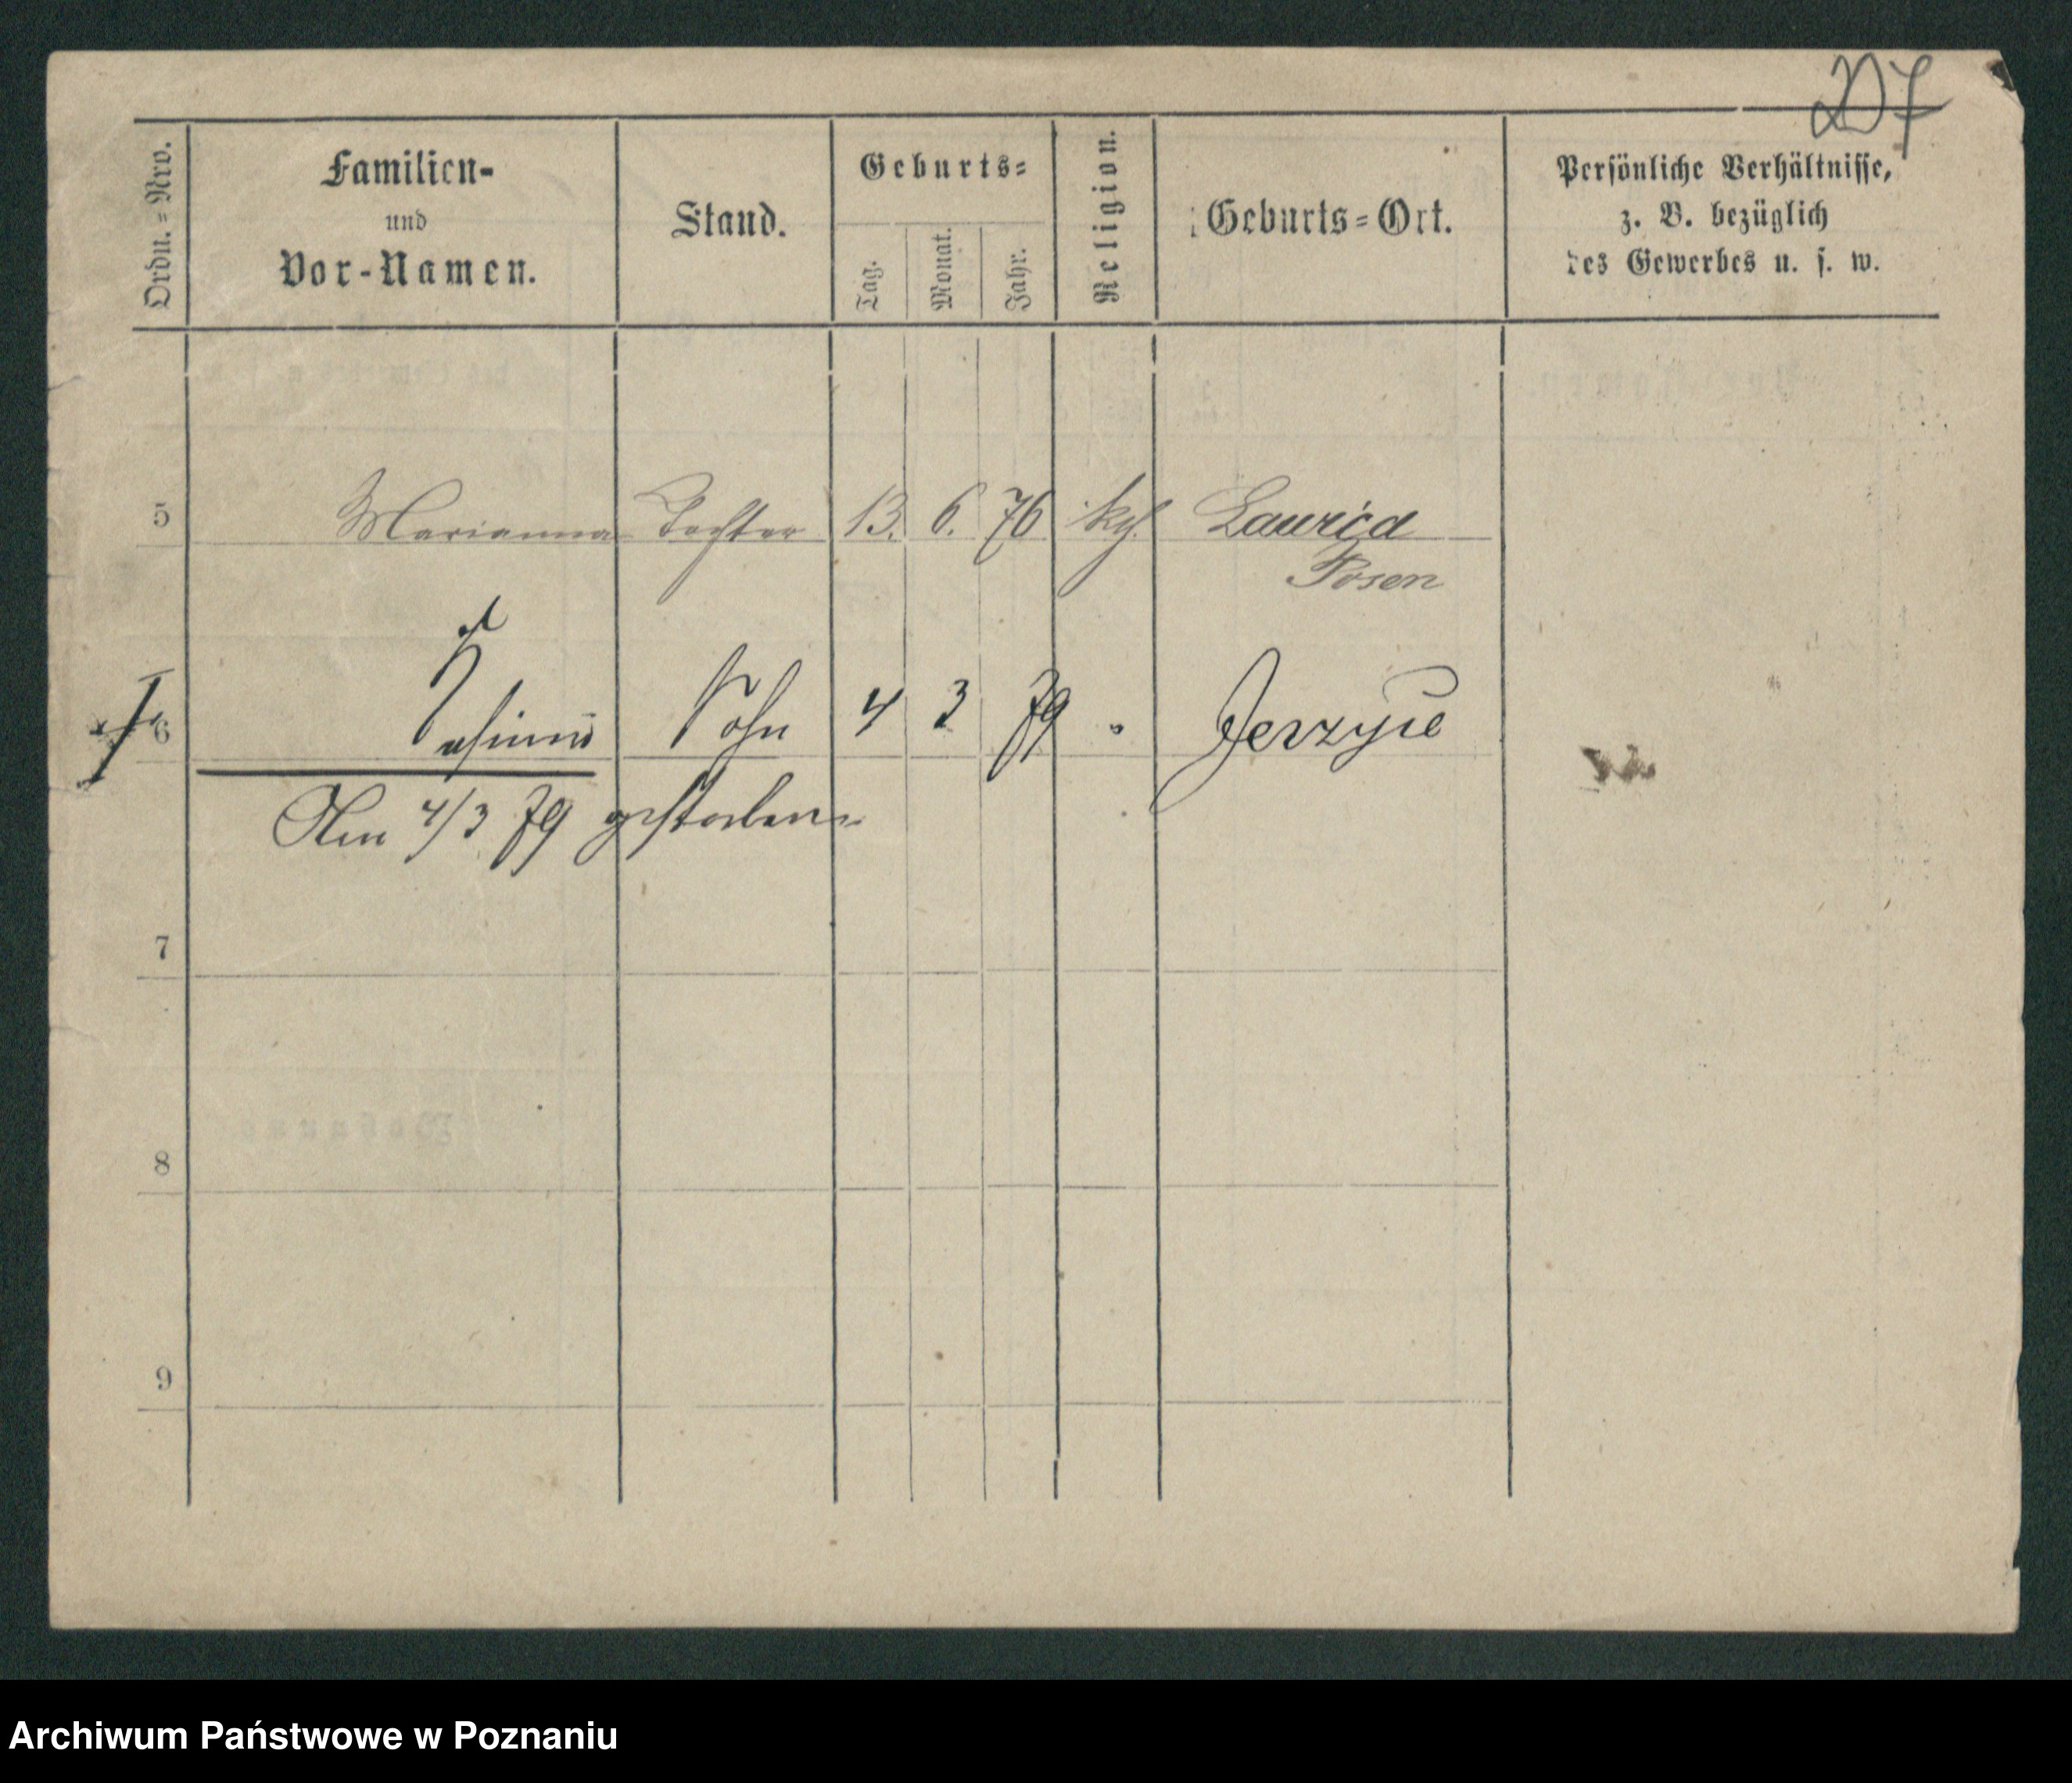 207
Ordn.=Nro.
Familien-
und
Vor-Namen.
Stand.
Geburts=
Tag.
Monat.
Jahr.
Religion.
Geburts=Ort.
Persönliche Verhältnisse,
z. B. bezüglich
des Gewerbes u. s. w.
5 Marianna Tochter 13. 6. 76 kath. Lawica
Posen
6 Sohn 4 3 79 " Jerzyce
Am 4/3 79 gestorben
7
8
9
Archiwum Państwowe w Poznaniu